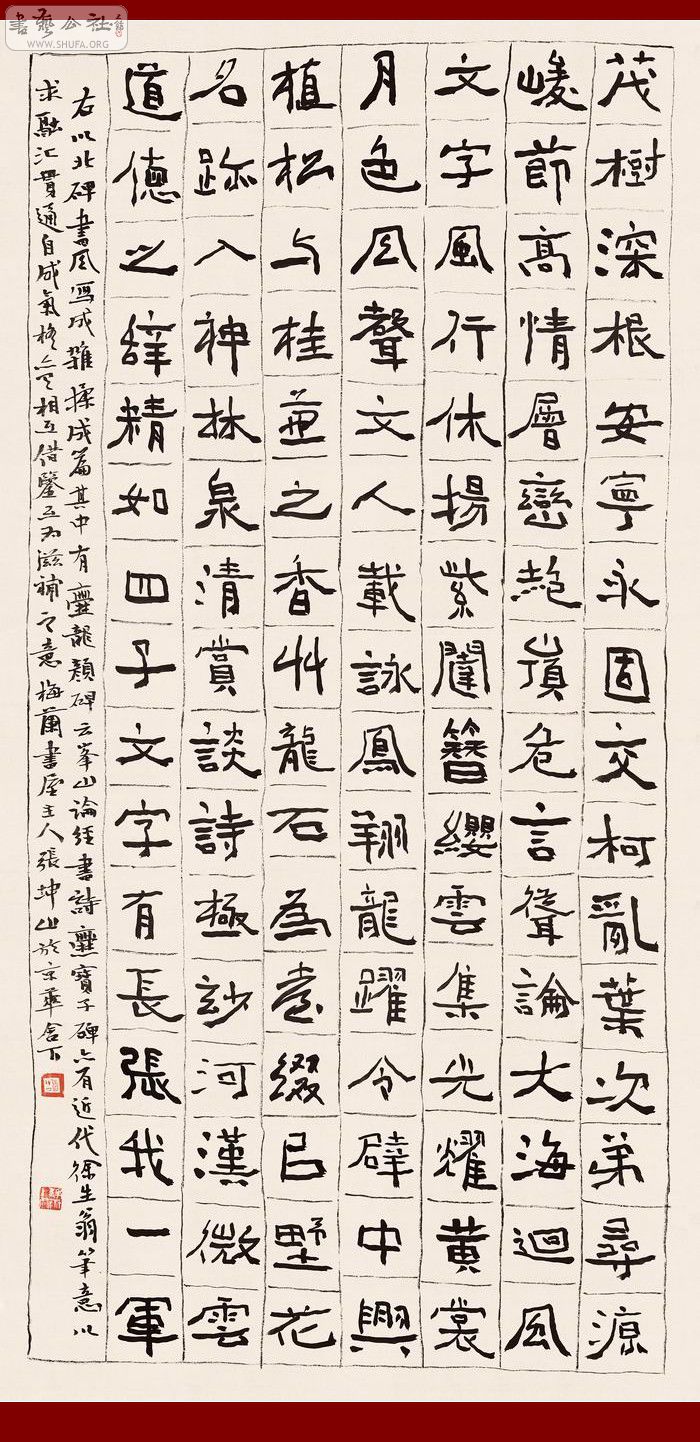 書藝公社
WWW.SHUFA.ORG
茂樹深根安寧永固交柯亂葉次弟尋源
峻節高情層巒危言聳論大海迴風
文字風行休揚紫闥簪纓雲集光耀黃裳
月色風聲文人載詠鳳翔龍躍令辟中興
植松与桂之香艸龍石為綴野花
名跡入神林泉清賞談詩極妙河漢微雲
道德之辭精如四子文字有長張我一軍
右以北碑書風寫成雜揉成篇其中有爨龍顏碑云峯山論經書詩爨寶子碑亦有近代徐生翁筆意以
求融汇貫通自成氣格亦是相互借鑒互为滋補之意梅蘭書屋主人張坤山於京華舍下